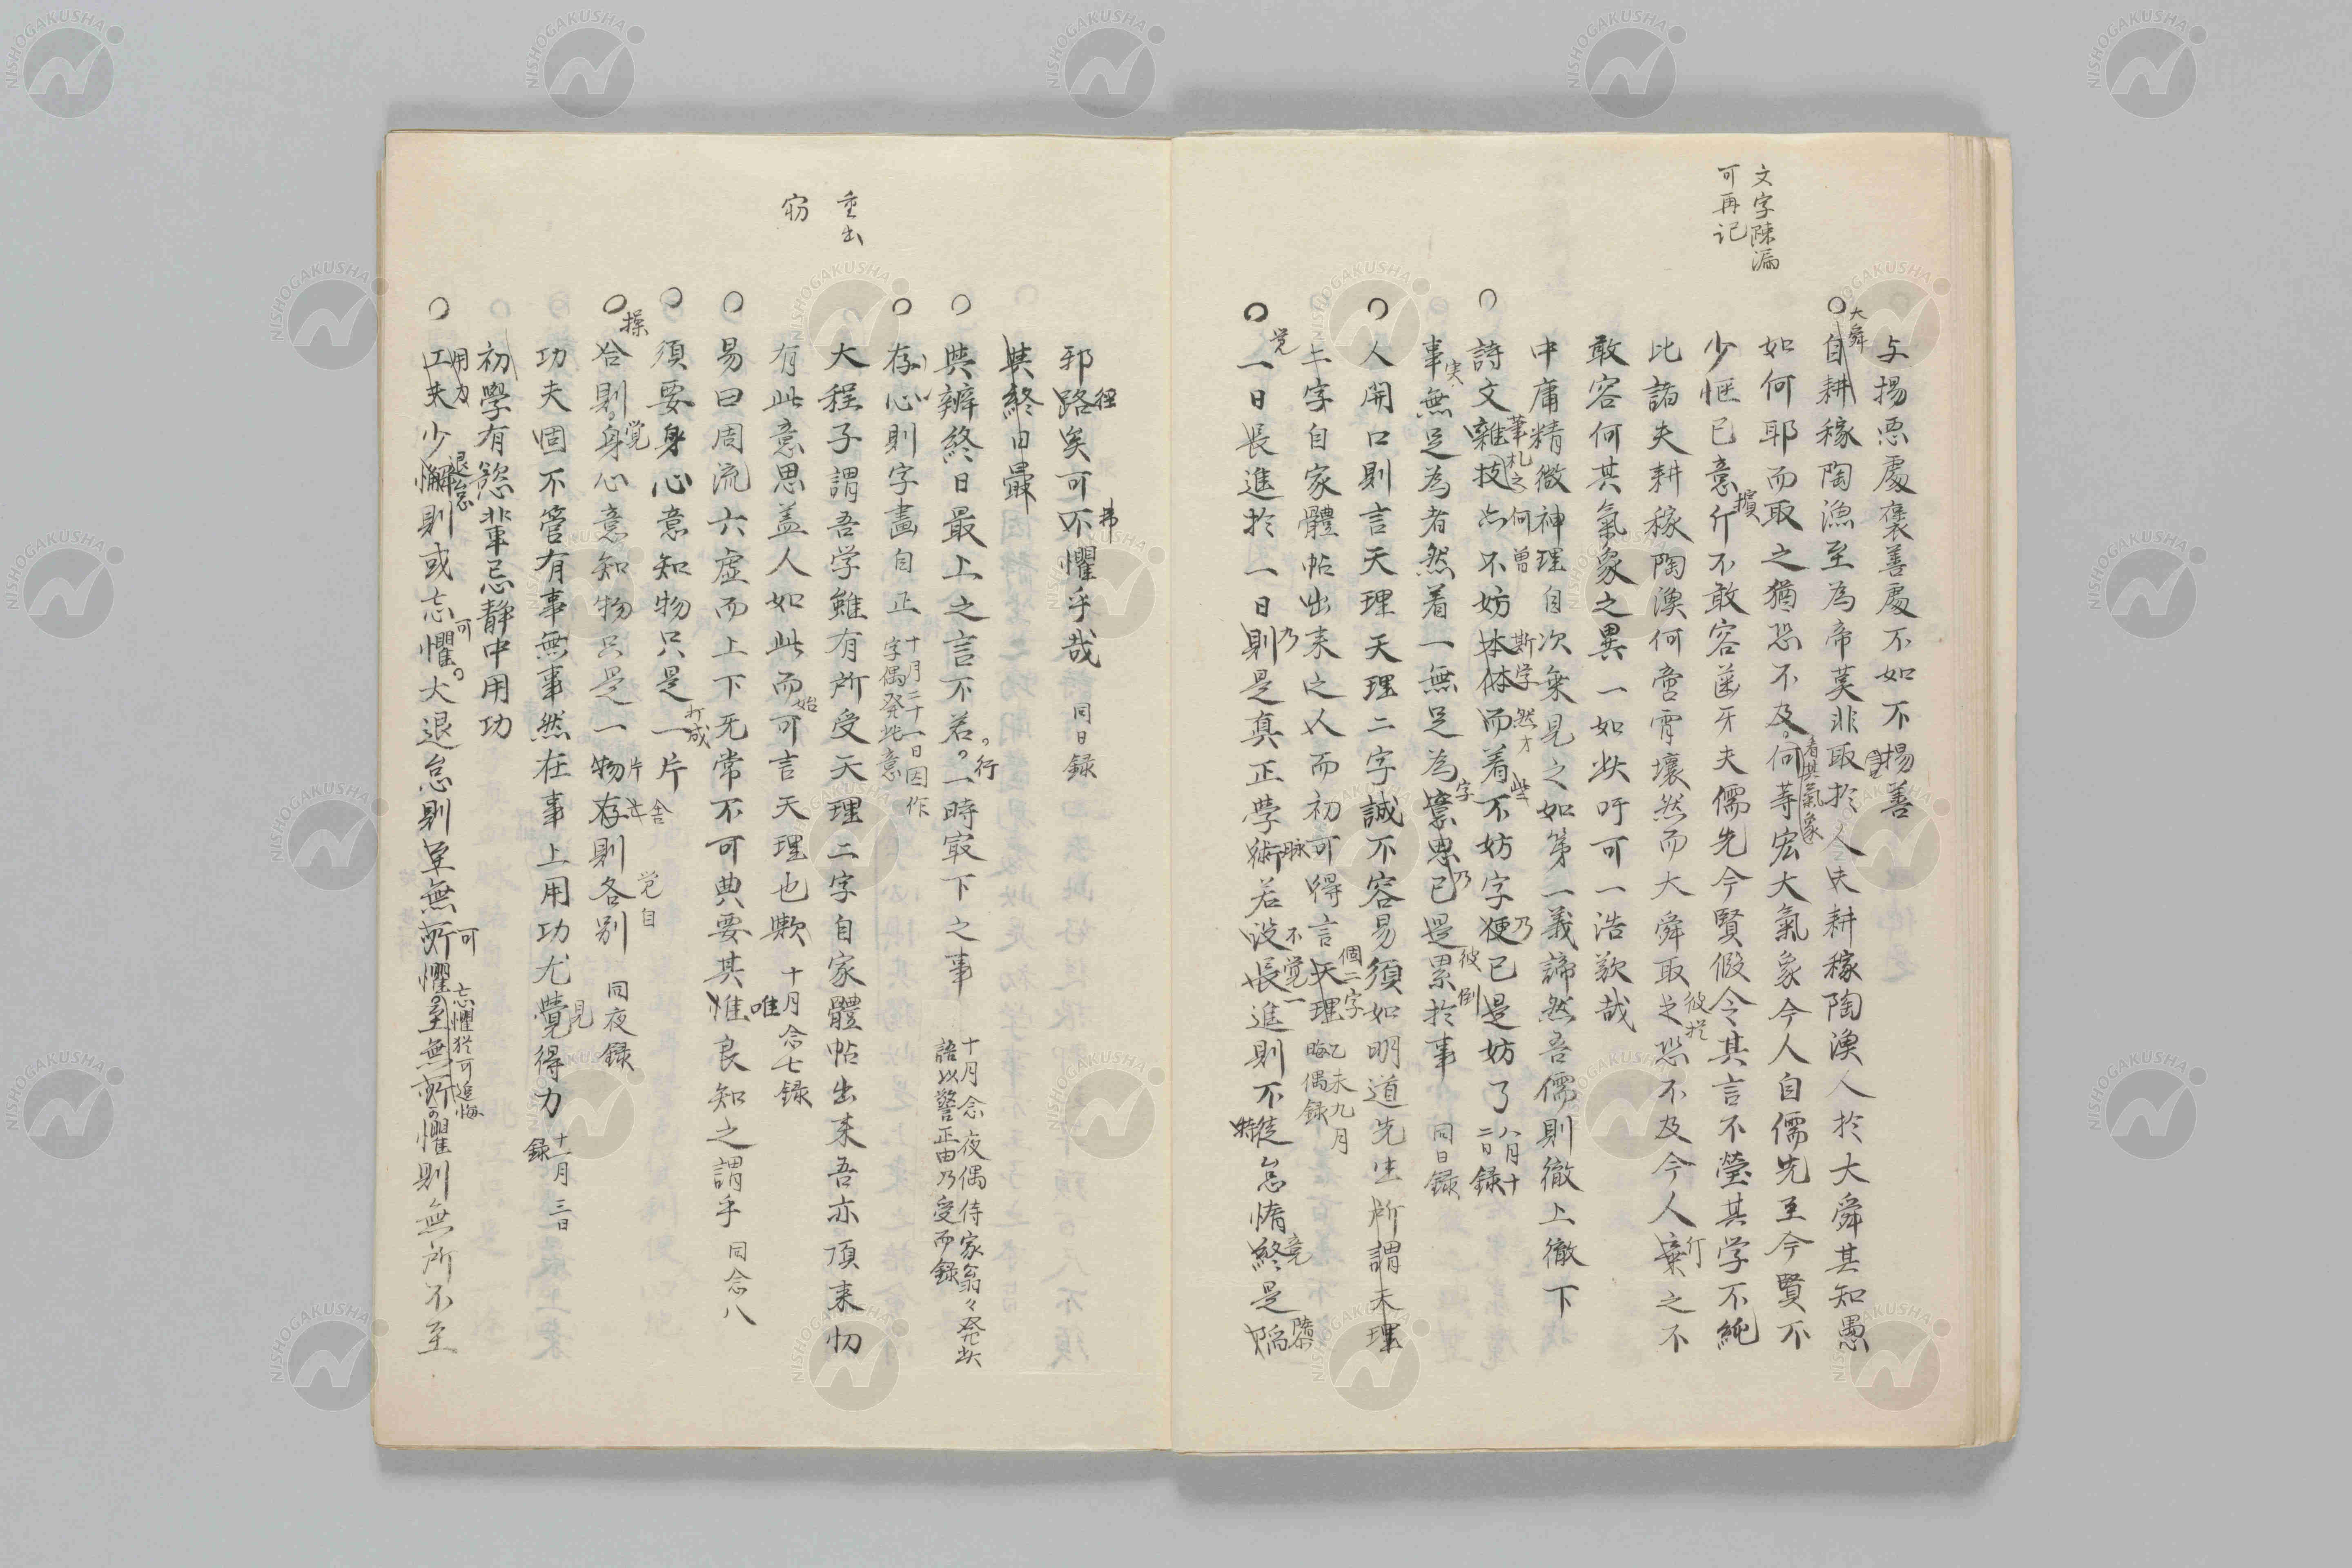 文字陳漏
可再记
与揚悪處褒善處不如不揚善
自耕稼陶漁至為帝莫非取於人夫耕稼陶漁人於大舜其知愚
大舜
如何耶而取之猶恐不及何等宏大氣象今人自儒先至今賢不
者其氣象
少怄已意斤不敢容齒牙夫儒先今賢假令其言不瑩其学不純
擯
比諸夫耕稼陶漁何啻霄壤然而大舜取之恐不及今人棄之不
彼於
敢容何其氣象之異一如此吁可一浩歎哉
中庸精微神理自次矣見之如第一義諦然吾儒則徹上徹下
詩文雜技亦不妨本体而着不妨字便已是妨了 八月十二日録
筆札之何曽 斯学然才 些 乃
事無足為者然着一無足為意思已是累於事 同日録
実 字 乃 彼倒
人開口則言天理天理二字誠不容易須如明道先生所謂天理
二字自家體帖出来之人而初可得言天理 乙未九月晦偶録
個二字
一日長進於一日則是真正学術若没長進則不徒怠惰終是陥
覚 乃 脉 不覚一 特 竟
邪路矣可不懼乎哉 同日録
徑
與終日最
與辨終日最上之言不若一時㝡下之事 十月念夜偶侍家翁々発此語以警正由乃受而録
行
存心則字畫自正 十月二十一日因作字偶発此意
重出
大程子謂吾学雖有所受天理二字自家體帖出来吾亦頂来
窃
有此意思盖人如此而可言天理也歟 十月念七録
始
易曰周流六虚而上下无常不可典要其惟良知之謂乎 同念八
唯
須要身心意知物只是一片
打成
合則身心意知物只是一物存則各別 同夜録
操 覚 片 舎 覚自
功夫固不管有事無事然在事上用功尤覺得力 十一月三日録
見
初學有慾輩忌静中用功
工夫少懈則或忘懼大退怠則至無所懼至無所懼則無所不至
用力 退怠 可 可 忘懼猶可追悔